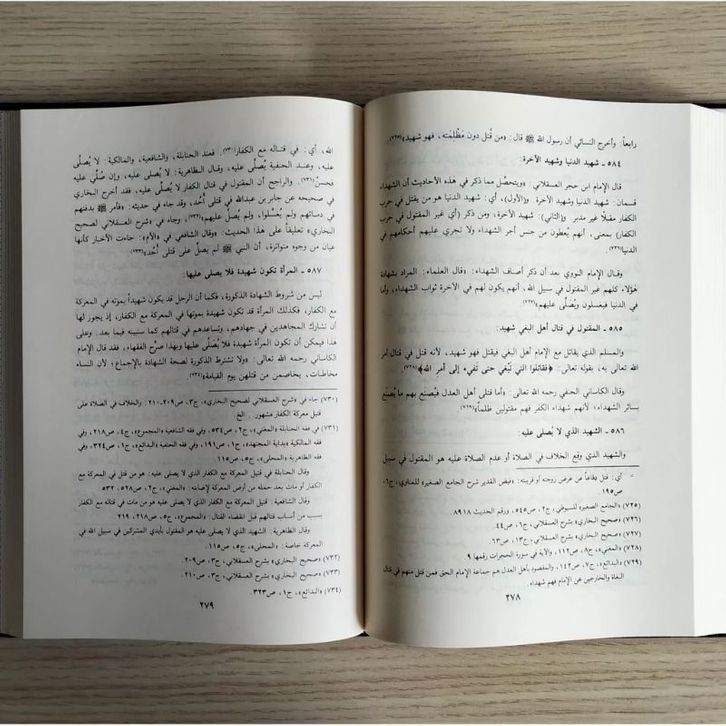 رابعاً: وأخرج النسائي أن رسول الله ﷺ قال: «من قُتل دون مَظْلمَته، فهو شهيد»(٧٢٥)
٥٨٤ ـ شهيد الدنيا وشهيد الآخرة:
قال الإمام ابن حجر العسقلاني «ويتحصل مما ذكر في هذه الأحاديث أن الشهداء
قسمان: شهيد الدنيا وشهيد الآخرة. و(الأول)، أي: شهيد الدنيا هو من يقتل في حرب
الكفار مقبلاً غير مدبر و(الثاني): شهيد الآخرة، ومن ذكر (أي غير المقتول في حرب
الكفار) بمعنى، أنهم يُعطون من جنس أجر الشهداء ولا تجري عليهم أحكامهم في
الدنيا»(٧٢٦)
وقـال الإمام النووي بعد أن ذكر أصناف الشهداء: «قال العلماء: المراد بشهادة
هؤلاء، كلهم غير المقتول في سبيل الله، أنهم يكون لهم في الآخرة ثواب الشهداء، وأما
في الدنيا فيغسلون ويُصلَّى عليهم»(٧٢٧)
٥٨٥ ـ المقتول في قتال أهل البغي شهيد:
والمسلم الذي يقاتل مع الإمام أهل البغي فيقتل فهو شهيد، لأنه قتل في قتال أمر
الله تعالى به، بقوله تعالى: ﴿فقاتلوا التي تَبْغي حتى تَفيء إلى أمر الله﴾(٧٢٨)
وقال الكاساني الحنفي رحمه الله تعالى: «أما قتلى أهل العدل فيُصنع بهم ما يُصنع
بسائر الشهداء؛ لأنهم شهداء الكفر فهم مقتولين ظلماً»(٧٢٩)
٥٨٦ ـ الشهيد الذي لا يُصلى عليه:
والشهيد الذي وقع الخلاف في الصلاة أو عدم الصلاة عليه هو المقتول في سبيل
= أي: قتل دفاعاً عن عرض زوجته أو قريبته: «فيض القدير شرح الجامع الصغير» للمناوي، ج٦،
ص١٩٥.
(٧٢٥) «الجامع الصغير» للسيوطي، ج٢، ص٥٤٥، ورقم الحديث ٨٩١٨
(٧٢٦) «صحيح البخاري» بشرح العسقلاني، ج٦، ص٤٤.
(٧٢٧) «صحيح البخاري» بشرح العسقلاني، ج٦، ص٦٣
(٧٢٨) «المغني»، ج٨، ص١١٢، والآية في سورة الحجرات رقمها ٩
(٧٢٩) «البدائع»، ج٧، ص١٤٢، والمقصود بأهل العدل هم جماعة الإمام الحق فمن قتل منهم في قتال
البغاة والخارجين عن الإمام فهم شهداء.
٢٧٨
الله، أي: في قتـاله مع الكفار(٧٣٠). فعند الحنابلة، والشافعية، والمالكية: لا يُصلَّى
عليه، وعنـد الحنفية يُصلَّى عليه، وقال الظاهرية: لا يُصلى عليه، وإن صُلِّي عليه
فحسنٌ(٧٣١). والراجح أن المقتول في قتال الكفار لا يُصلَّى عليه، فقد أخرج البخاري
في صحيحه عن جابر بن عبدالله في قتلى أُحد، وقد جاء في حديثه: «فأمر ﷺ بدفنهم
في دمائهم ولم يُغسَّلوا، ولم يُصلَّ عليهم»(٧٣٢)، وجاء في «شرح العسقلاني لصحيح
البخاري» تعليقاً على هذا الحديث: «وقال الشافعي في «الأم»: جاءت الأخبار كأنها
عيان من وجوه متواترة، أن النبي ﷺ لم يصلِّ على قتلى أُحُد»(٧٣٣)
٥٨٧ ـ المرأة تكون شهيدة فلا يصلى عليها:
ليس من شروط الشهادة الذكورة، فكما أن الرجل قد يكون شهيداً بموته في المعركة
مع الكفار، فكذلك المرأة قد تكون شهيدة بموتها في المعركة مع الكفار، إذ يجوز لها
أن تشارك المجاهدين في جهادهم، وتساعدهم في قتالهم كما سنبينه فيما بعد. وعلى
هذا فيمكن أن تكون المرأة شهيدة فلا يُصلَّى عليها وبهذا صرَّح الفقهاء، فقد قال الإمام
الكاساني رحمه الله تعالى: «ولا تشترط الذكورة لصحة الشهادة بالإجماع؛ لأن النساء
مخاطبات، يخاصمن من قتلهن يوم القيامة»(٧٣٤)
(٧٣٠) جاء في «شرح العسقلاني لصحيح البخاري»، ج٣، ص٢٠٩-٢١٠: والخلاف في الصلاة على
قتيل معركة الكفار مشهور... الخ
(٧٣١) في فقه الحنابلة «المغني»، ج٢، ص٥٣٤، وفي فقه الشافعية «المجموع»، ج٤، ص٢١٨، وفي
فقه المالكية «بداية المجتهد»، ج١، ص١٩١، وفي فقه الحنفية «البدائع»، ج١، ص٣٢٤، وفي
فقه الظاهرية «المحلى»، ج٥، ص١١٥.
وقال الحنابلة في قتيل المعركة مع الكفار الذي لا يصلى عليه: هو من قتل في المعركة مع
الكفار أو مات بعد حمله من أرض المعركة لإصابته: «المغني»، ج٢، ص٥٢٨، ٥٣٢
وقال الشافعية: قتيل المعركة مع الكفار الذي لا يصلى عليه هو من مات في قتاله مع الكفار
بسبب من أسباب قتالهم قبل انقضاء القتال: «المجموع»، ج٥، ص٢١٨، ٢١٩.
وقال الظاهرية: الشهيد الذي لا يصلى عليه هو المقتول بأيدي المشركين في سبيل الله في
المعركة خاصة: «المحلى»، ج٥، ص١١٥.
(٧٣٢) «صحيح البخاري» بشرح العسقلاني، ج٣، ص٢٠٩.
(٧٣٣) «صحيح البخاري» بشرح العسقلاني، ج٣، ص٢١٠.
(٧٣٤) «البدائع»، ج١، ص٣٢٣.
٢٧٩